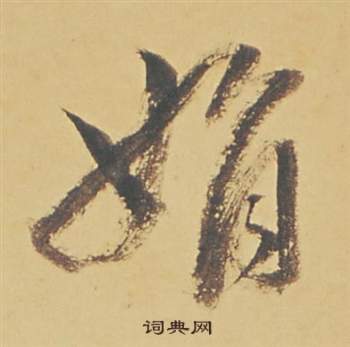 娟
词典网